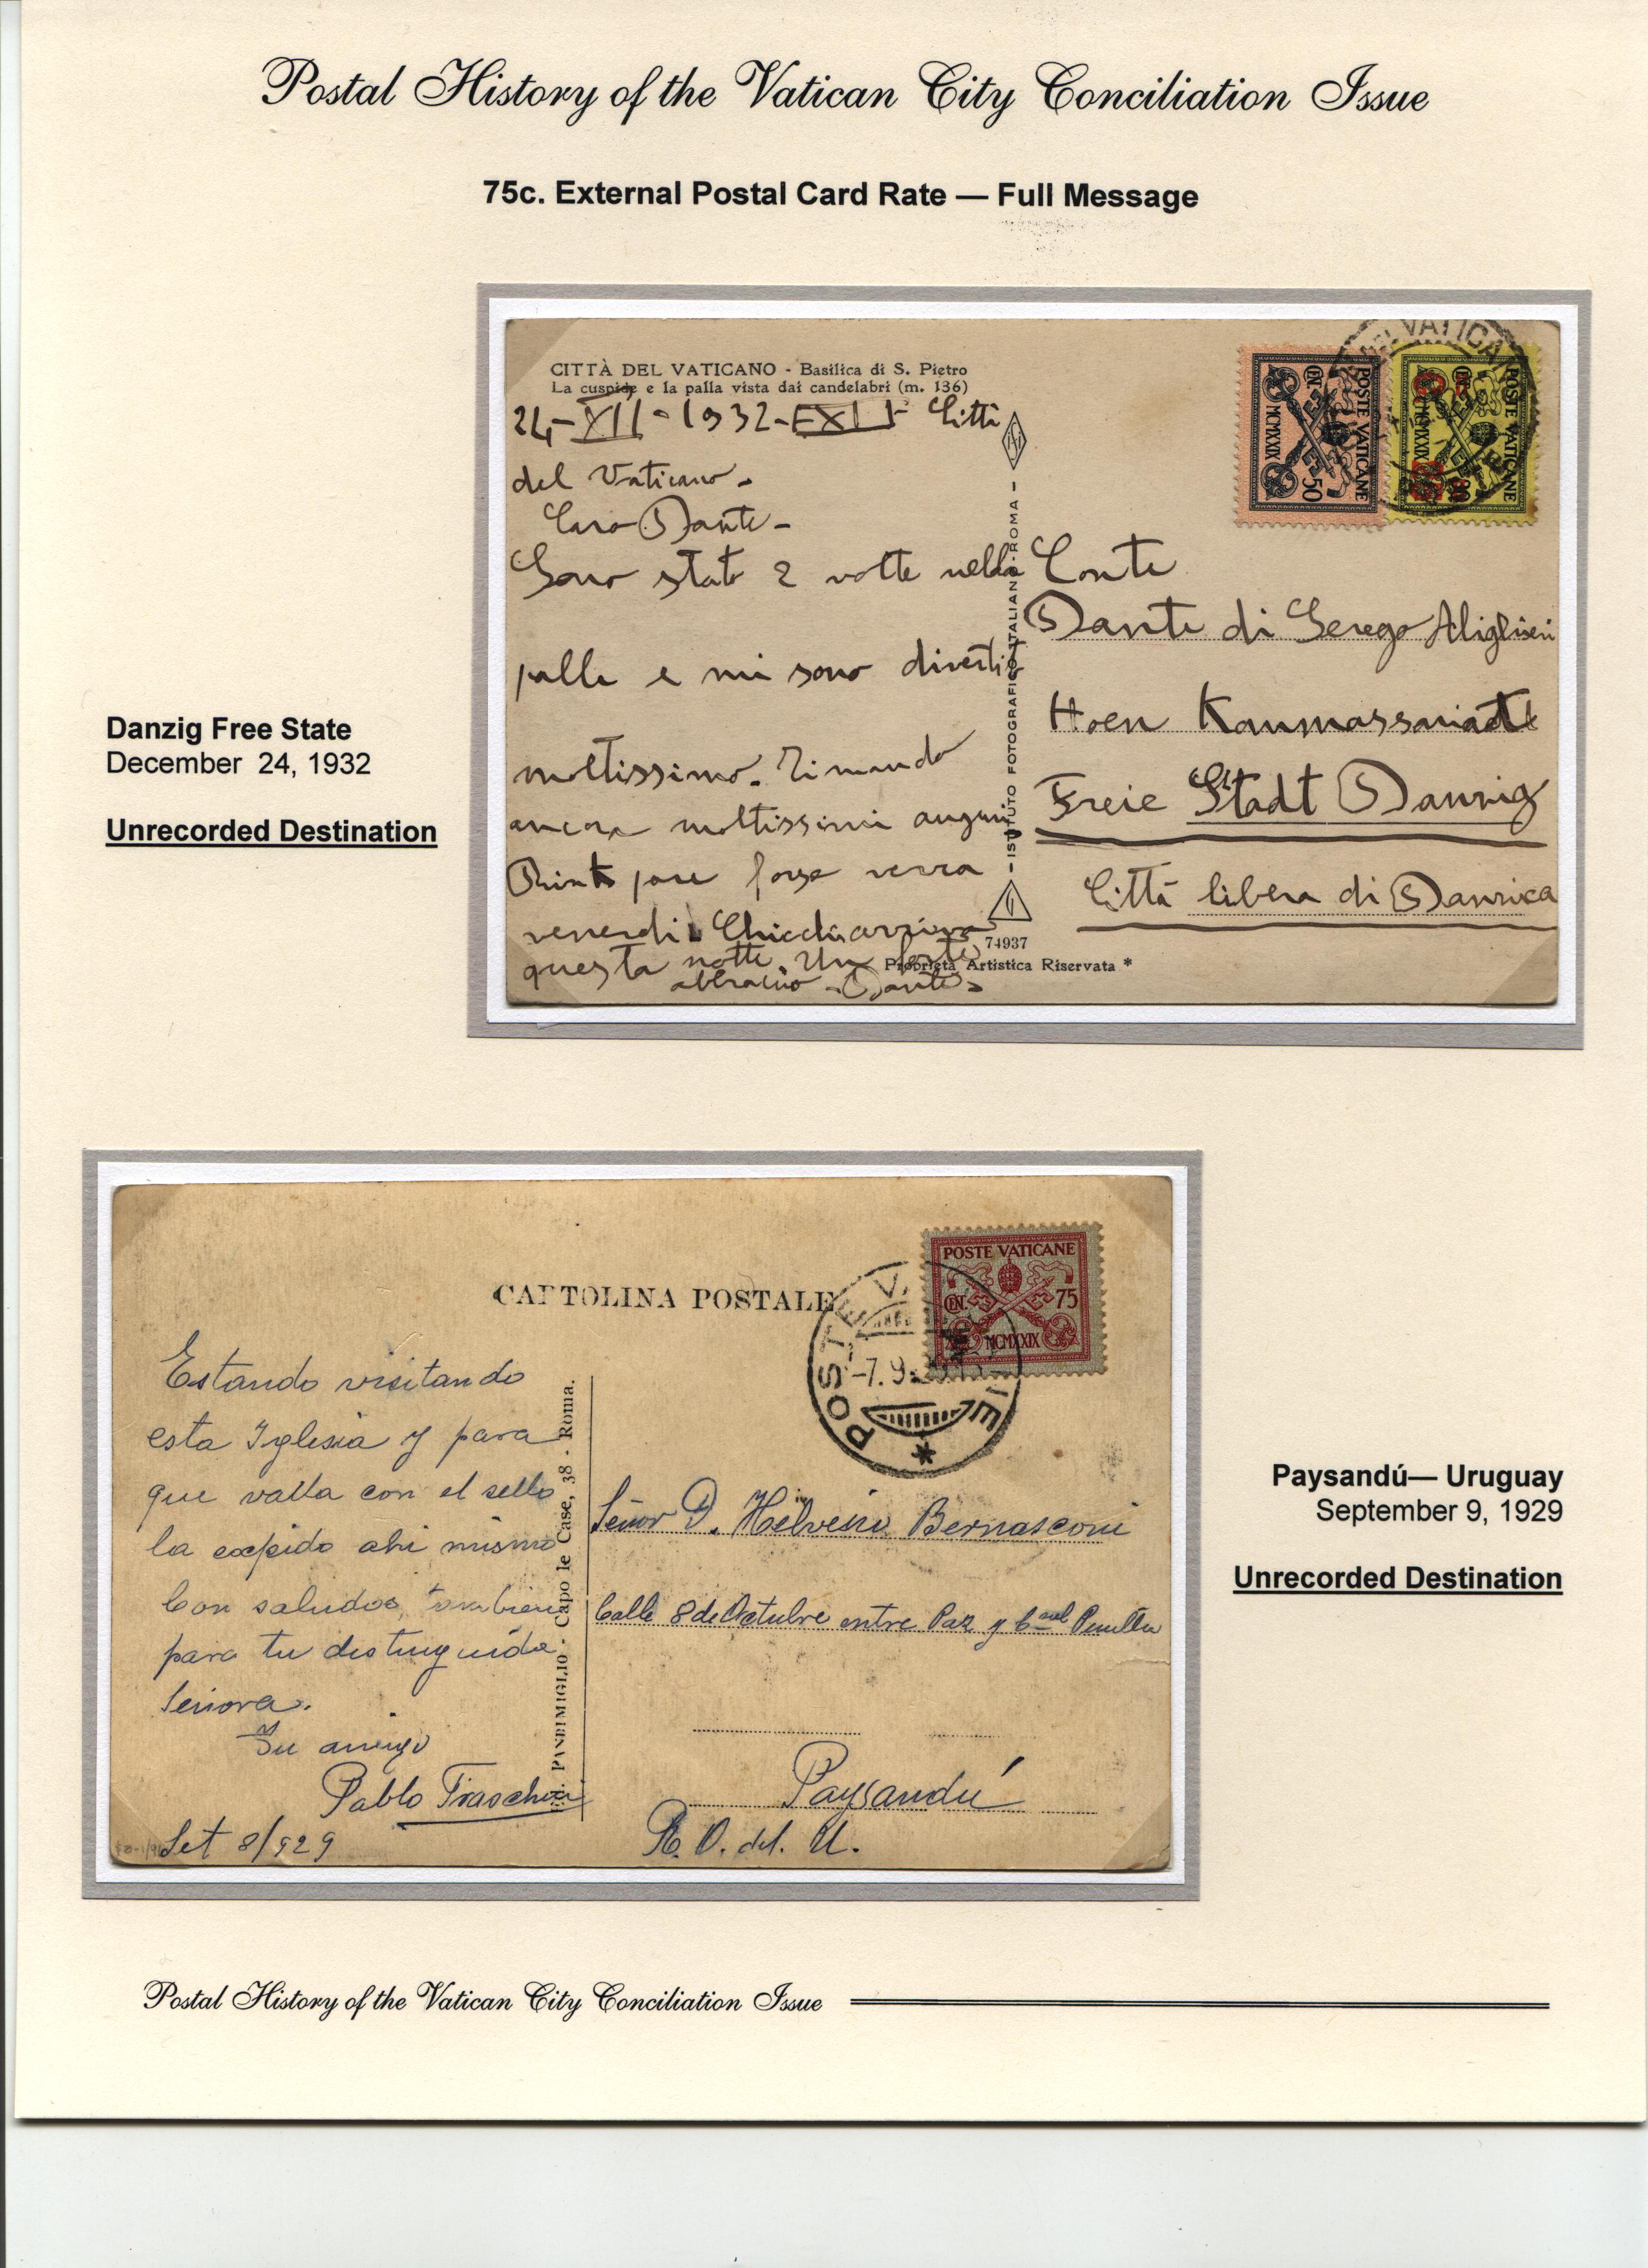 Postal History of the Vatican City Conciliation Issue
75c. External Postal Card Rate — Full Message
CITTÀ DEL VATICANO - Basilica di S. Pietro
La cuspide e la palla vista dai candelabri (m. 136)
24-XII-1932-EXI Città
del Vaticano -
Caro Dante -
Sono stato 2 volte nella
palla e mi sono divertito
moltissimo. Rimando
ancora moltissimi auguri
pare forse verrà
venerdi
questa notte. Un forte
abbraccio - Dante -
— ISTITUTO FOTOGRAFICO ITALIANO · ROMA —
74937
Proprietà Artistica Riservata *
POSTE VATICANE
CEN. 50
MCMXXIX
POSTE VATICANE
MCMXXIX
DEL VATICA
Conte
Dante di Serego Alighieri
Hoen
Freie Stadt Danzig
Città libera di Danzica
Danzig Free State
December 24, 1932
Unrecorded Destination
CARTOLINA POSTALE
POSTE VATICANE
CEN. 75
MCMXXIX
POSTE V
-7.9.
E
Estando visitando
esta Iglesia y para
que valla con el sello
la expido ahi mismo
Con saludos, tambien
para tu distinguida
Señora.
Su amigo
Pablo
Set 8/929
PANDIMIGLIO - Capo le Case, 38 - Roma.
Señor D. Helvecio Bernasconi
Calle 8 de Octubre entre Paz y
Paysandú
R. O. del. U.
Paysandú— Uruguay
September 9, 1929
Unrecorded Destination
Postal History of the Vatican City Conciliation Issue